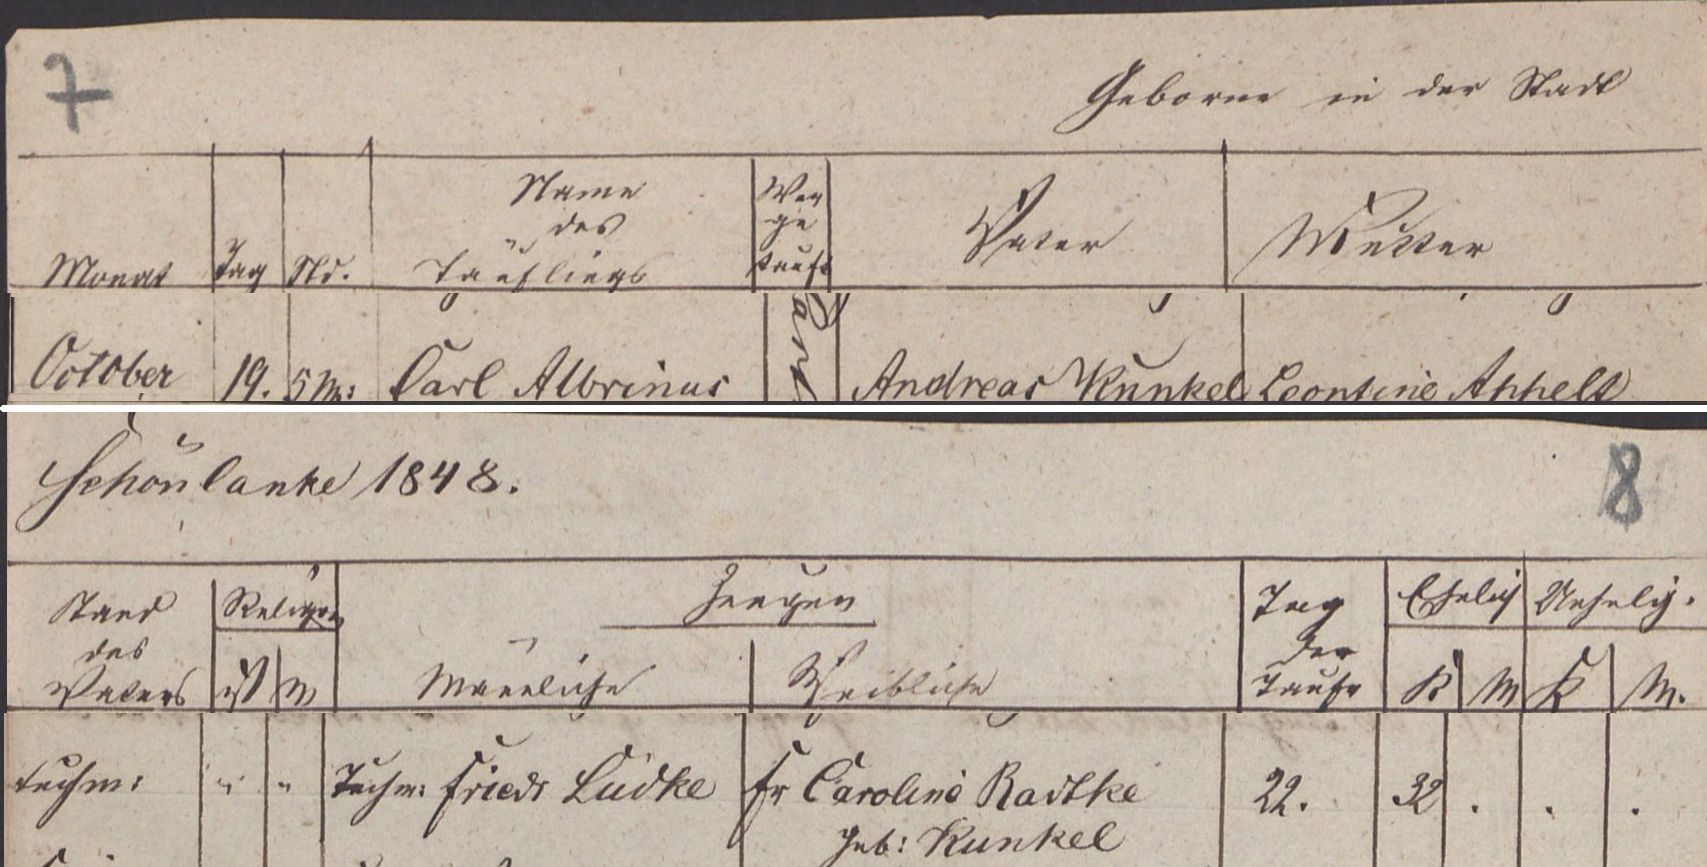 7
Geborne in der Stadt
Monat Tag Std. Name des Täuflings Wer ge tauft Vater Mutter
October 19. 5 M: Carl Albrinus Andreas Kunkel Leontine Appelt
Schönlanke 1848.
8
Stand des Vaters Religion Zeugen Tag der Taufe Ehelich Unehelich.
V M Männliche Weibliche K M K M.
Tuchm: " " Tuchm: Friedr Lüdke Fr Caroline Radtke 22. 32 . . .
geb: Kunkel